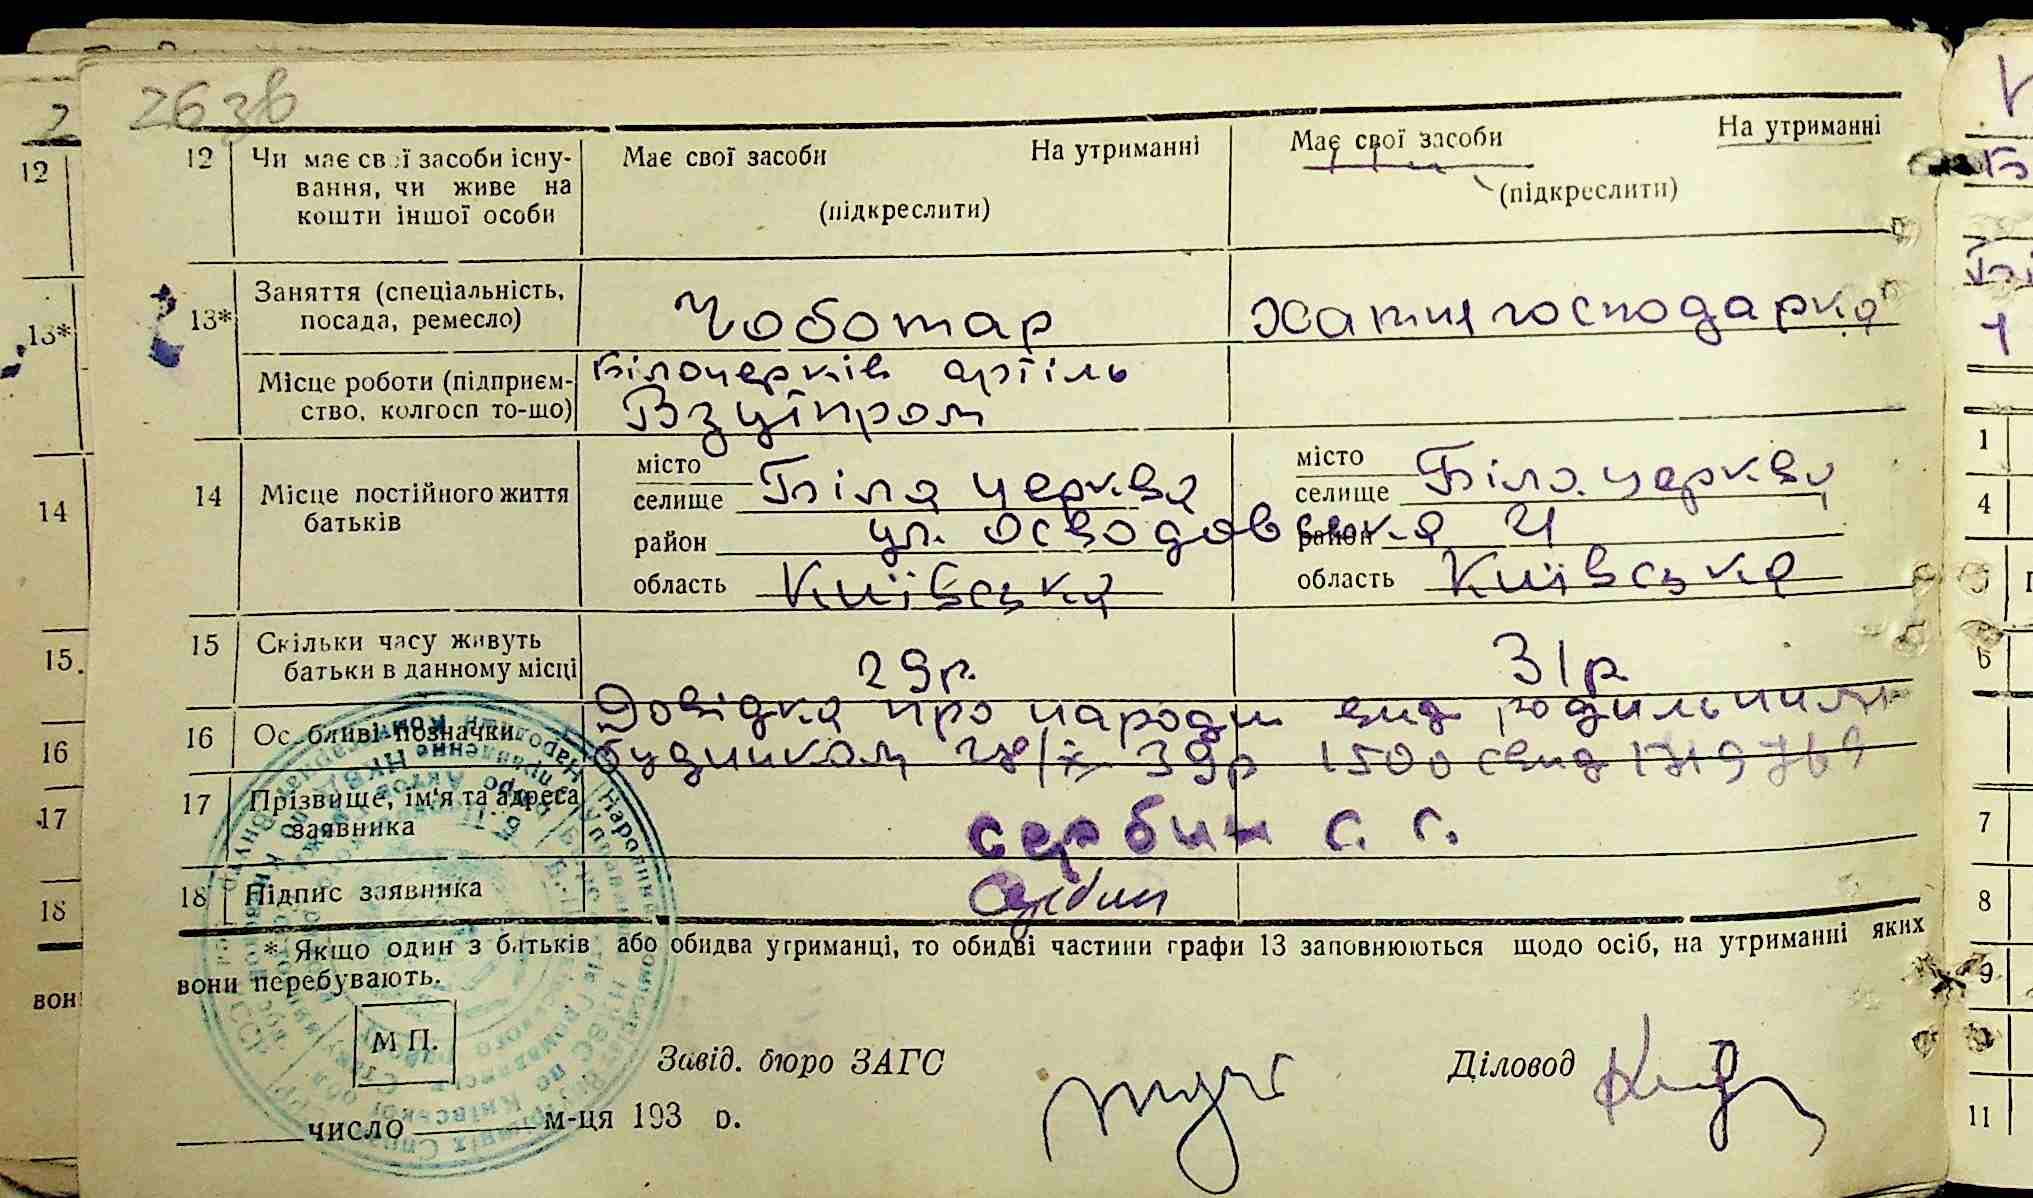 26 зв
12 Чи має свої засоби існу-
вання, чи живе на
кошти іншої особи
Має свої засоби На утриманні
(підкреслити)
Має свої засоби На утриманні
(підкреслити)
13* Заняття (спеціальність,
посада, ремесло)
Чоботар
хатня господарка
Місце роботи (підприєм-
ство, колгосп то-що)
Білоцерків артіль
Взутпром
14 Місце постійного життя
батьків
місто
селище Біла церква
район ул. Осводовська 21
область Київська
місто
селище Біла церква
район
область Київська
15 Скільки часу живуть
батьки в данному місці
29 р.
31 р.
16 Особливі позначки
Довідка про народж вид родильним
будинком 39 р 1500 свид
17 Прізвище, ім'я та адреса
заявника
Сербин С. Г.
18 Підпис заявника
Сербин
* Якщо один з батьків або обидва утриманці, то обидві частини графи 13 заповнюються щодо осіб, на утриманні яких
вони перебувають.
М П.
Завід. бюро ЗАГС
Діловод
число м-ця 193 р.
2
12
13*
14
15
16
17
18
вон
1
4
5
6
7
8
9
11